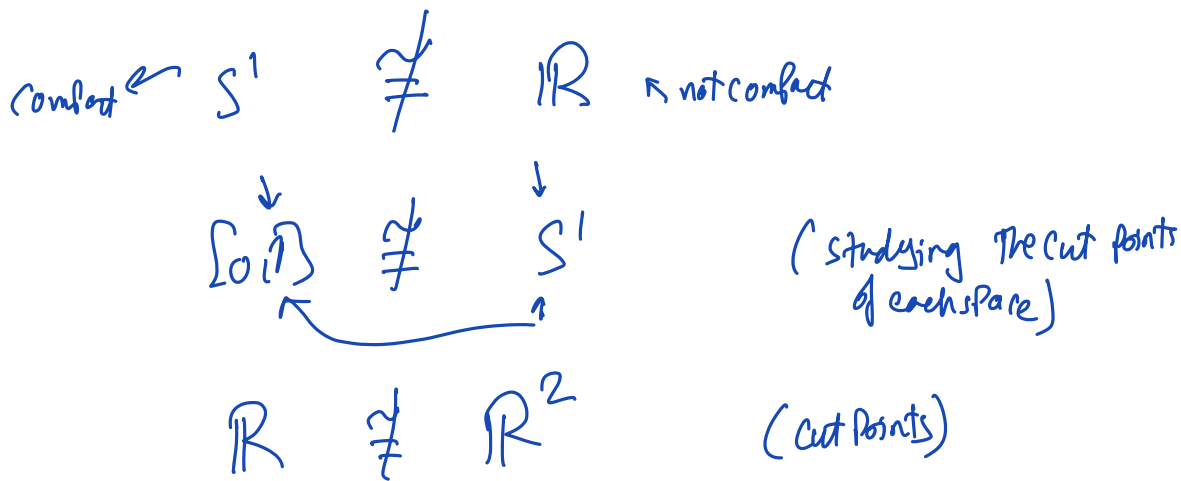 compact ← S¹ ≇ ℝ ↖ not compact
[0,1] ≇ S¹ (studying The cut points
of each space)
ℝ ≇ ℝ² (cut Points)